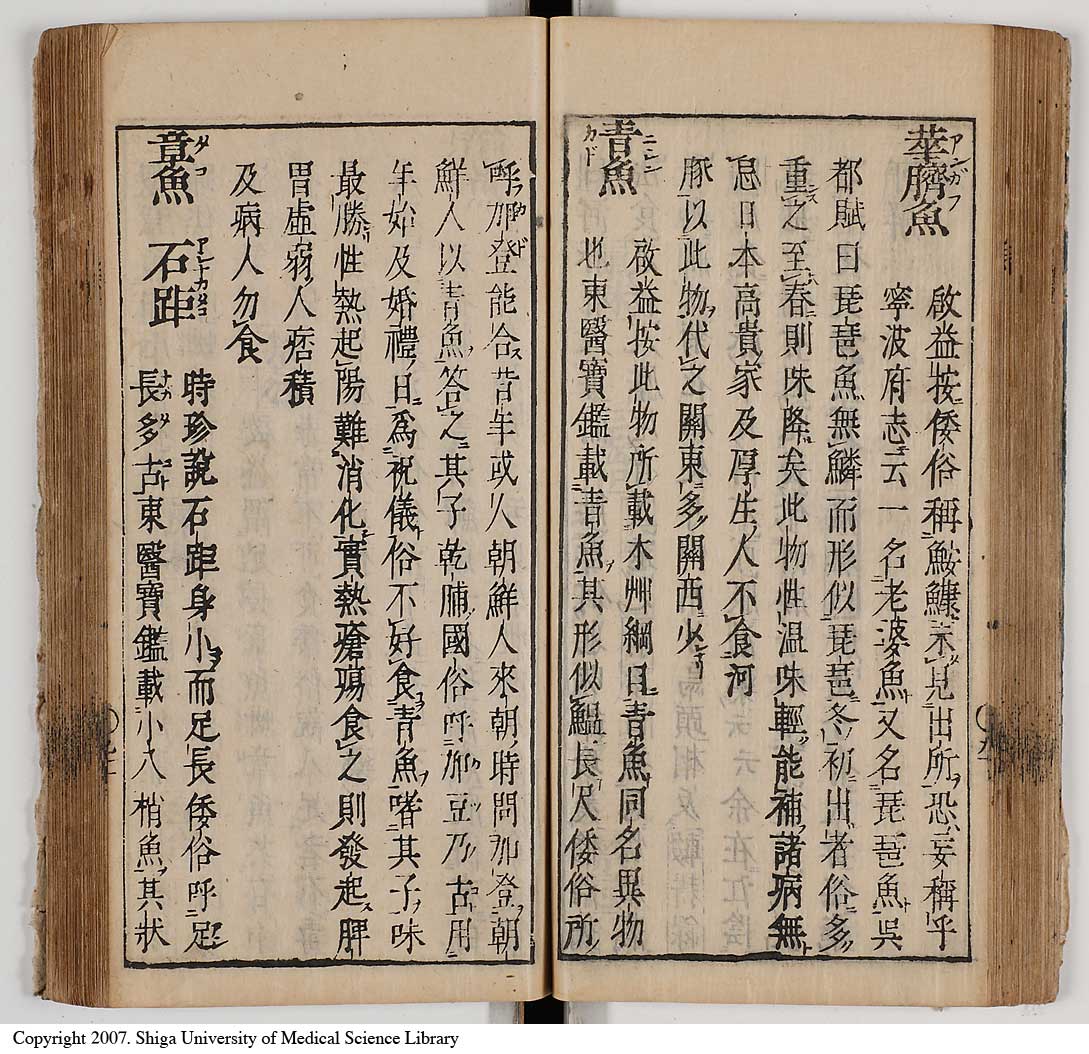 華臍魚
アンガフ
啟益按倭俗稱鮟鱇未見出所恐妄稱乎
寧波府志云一名老婆魚又名琵琶魚吳
都賦曰琵琶魚無鱗而形似琵琶冬初出者俗多
重之至春則味降矣此物性温味輕能補諸病無
忌日本高貴家及厚生人不食河
豚以此物代之關東多關西少
青魚
ニシン
カド
啟益按此物所載本艸綱目青魚同名異物
也東醫寶鑑載青魚其形似鰮長尺倭俗所
呼加登能合昔年或人朝鮮人來朝時問加登朝
鮮人以青魚答之其子乾脯國俗呼加豆乃古用
年始及婚禮日爲祝儀俗不好食青魚嗜其子味
最勝性熱起陽難消化實熱瘡瘍食之則發起脾
胃虛弱人痞積
及病人勿食
章魚 石距
タコ
時珍說石距身小而足長倭俗呼足
長多古東醫寶鑑載小八梢魚其狀
Copyright 2007. Shiga University of Medical Science Library